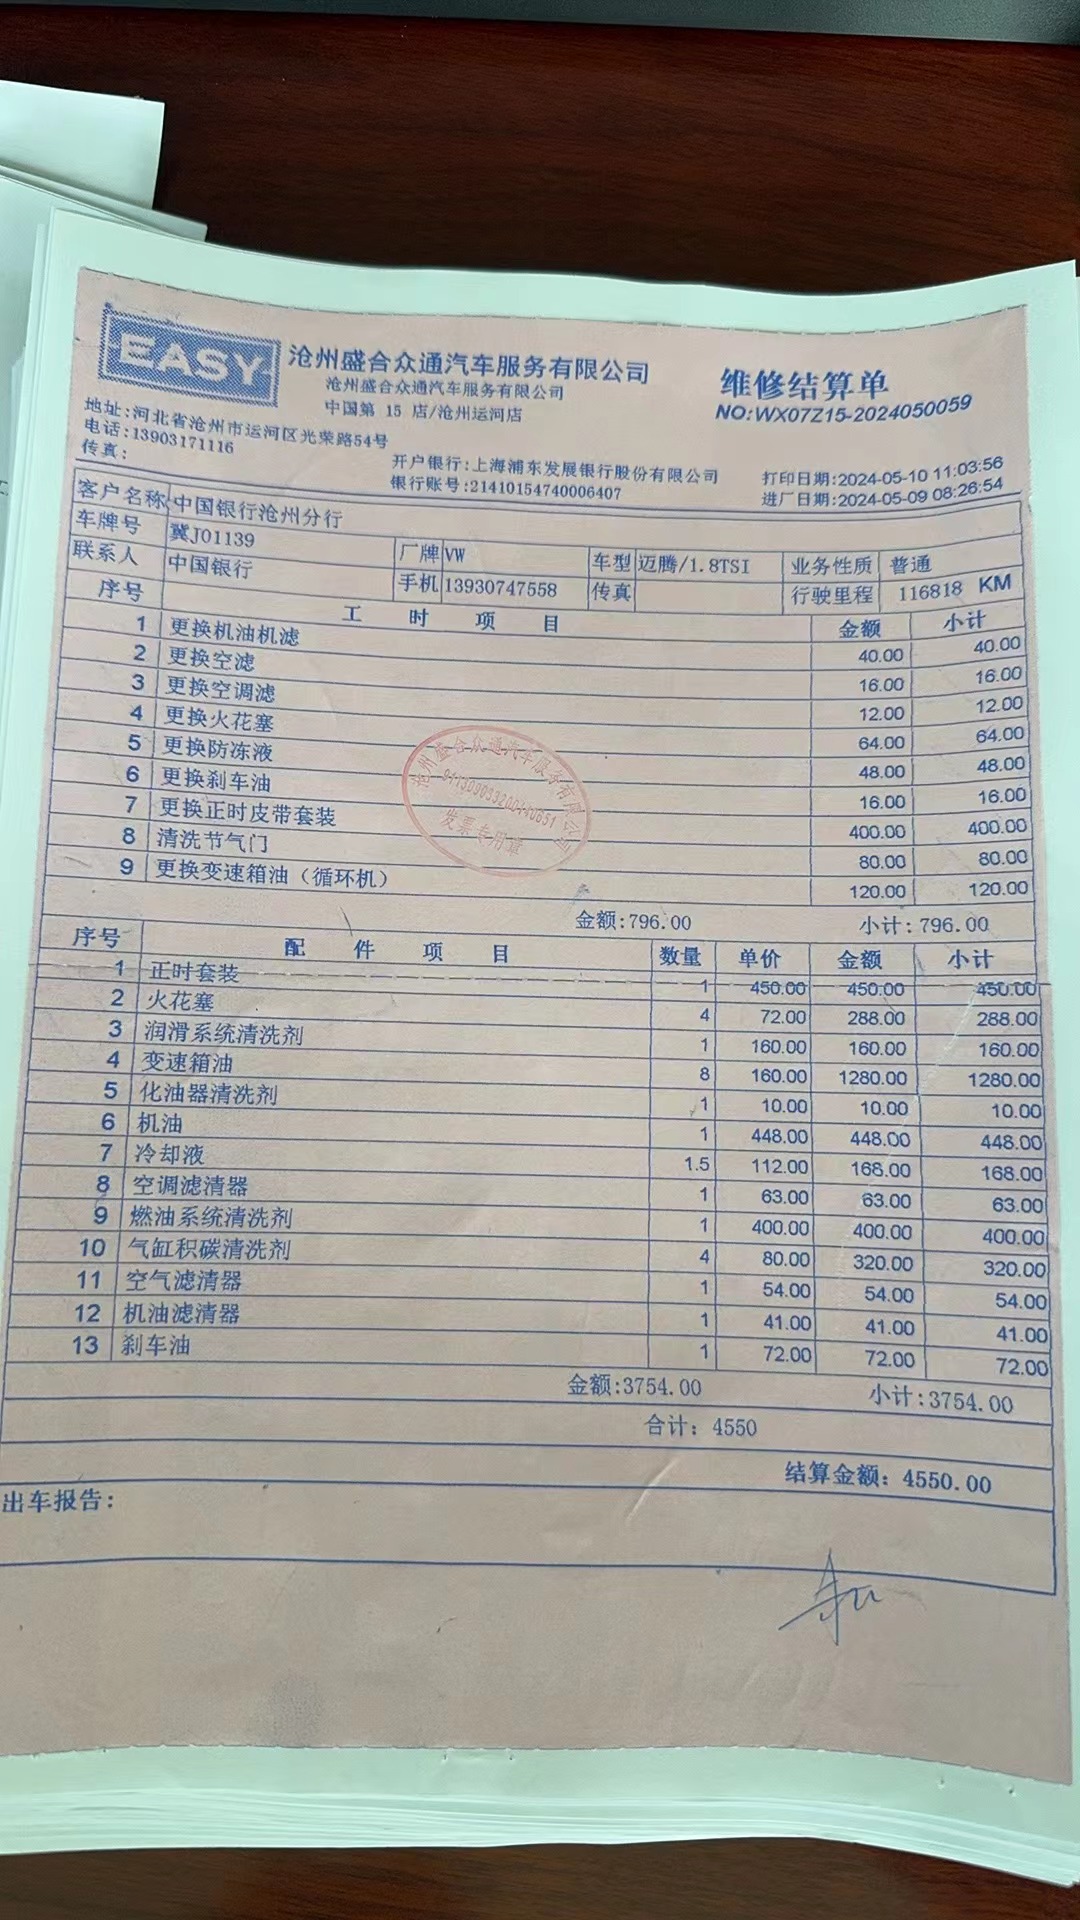 EASY
沧州盛合众通汽车服务有限公司
沧州盛合众通汽车服务有限公司
中国第 15 店/沧州运河店
维修结算单
NO:WX07Z15-2024050059
地址:河北省沧州市运河区光荣路54号
电话:13903171116
传真:
开户银行:上海浦东发展银行股份有限公司
银行账号:21410154740006407
打印日期:2024-05-10 11:03:56
进厂日期:2024-05-09 08:26:54
客户名称 中国银行沧州分行
车牌号 冀J01139 厂牌 VW 车型 迈腾/1.8TSI 业务性质 普通
联系人 中国银行 手机 13930747558 传真 行驶里程 116818 KM
序号 工 时 项 目 金额 小计
1 更换机油机滤 40.00 40.00
2 更换空滤 16.00 16.00
3 更换空调滤 12.00 12.00
4 更换火花塞 64.00 64.00
5 更换防冻液 48.00 48.00
6 更换刹车油 16.00 16.00
7 更换正时皮带套装 400.00 400.00
8 清洗节气门 80.00 80.00
9 更换变速箱油（循环机） 120.00 120.00
沧州盛合众通汽车服务有限公司
发票专用章
金额:796.00 小计: 796.00
序号 配 件 项 目 数量 单价 金额 小计
1 正时套装 1 450.00 450.00 450.00
2 火花塞 4 72.00 288.00 288.00
3 润滑系统清洗剂 1 160.00 160.00 160.00
4 变速箱油 8 160.00 1280.00 1280.00
5 化油器清洗剂 1 10.00 10.00 10.00
6 机油 1 448.00 448.00 448.00
7 冷却液 1.5 112.00 168.00 168.00
8 空调滤清器 1 63.00 63.00 63.00
9 燃油系统清洗剂 1 400.00 400.00 400.00
10 气缸积碳清洗剂 4 80.00 320.00 320.00
11 空气滤清器 1 54.00 54.00 54.00
12 机油滤清器 1 41.00 41.00 41.00
13 刹车油 1 72.00 72.00 72.00
金额:3754.00 小计:3754.00
合计: 4550
结算金额: 4550.00
出车报告: